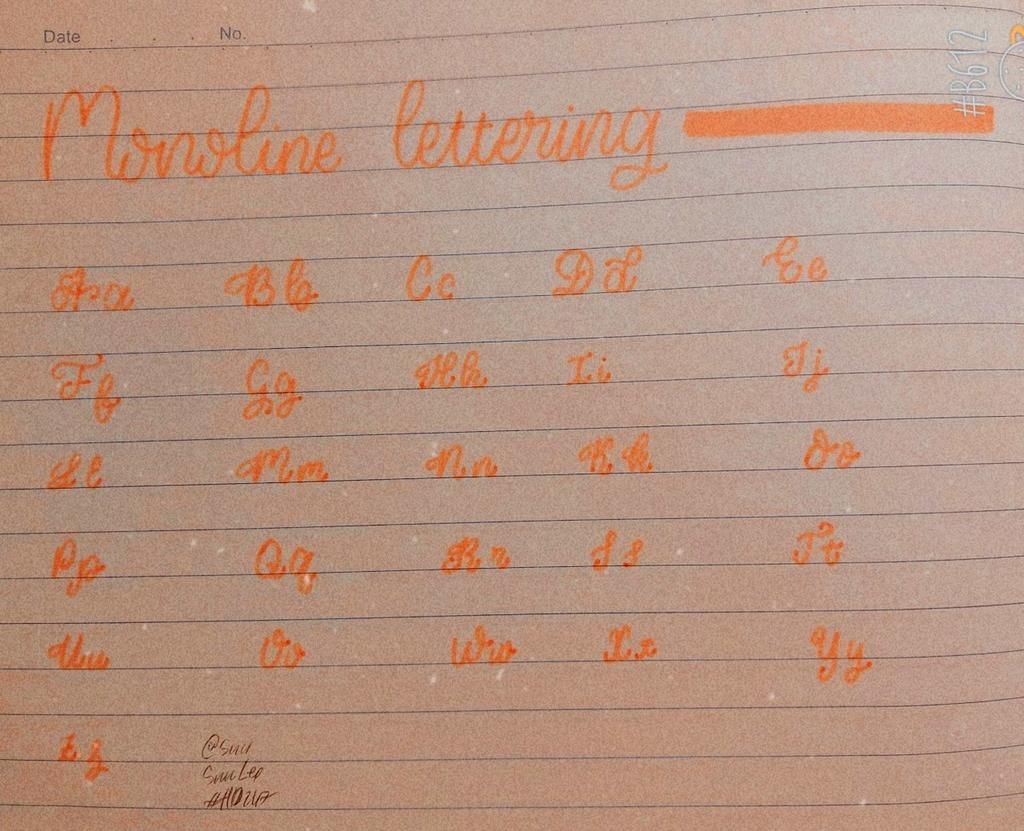 Date . . . . No.
#B612
Monoline lettering
Aa Bb Cc Dd Ee
Ff Gg Hh Ii Jj
Ll Mm Nn Kk Oo
Pp Qq Rr Ss Tt
Uu Vv Ww Xx Yy
Zz